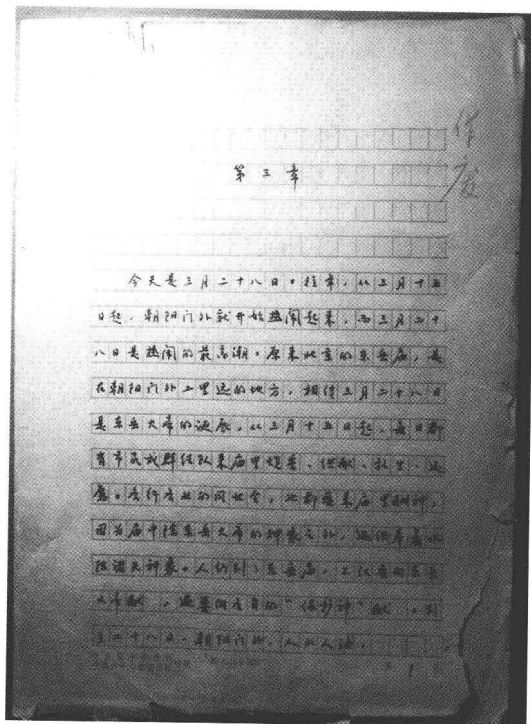 作废
第三章
今天是三月二十八日。往年，从三月十五
日起，朝阳门外就开始热闹起来，而三月二十
八日是热闹的最高潮。原来北京的东岳庙，是
在朝阳门外二里远的地方，相传三月二十八日
是东岳大帝的诞辰，从三月十五日起，每日都
有市民成群结队来庙里烧香、供献、放生、还
愿。各行各业的同业会，也都要来庙里酬神，
因为庙中除东岳大帝的神象之外，还供奉着
诸天神象。人们到了东岳庙，不仅要向东岳
大帝献，还要向各自的“保护神”献。到
了二十八日，朝阳门外，人山人海，
1